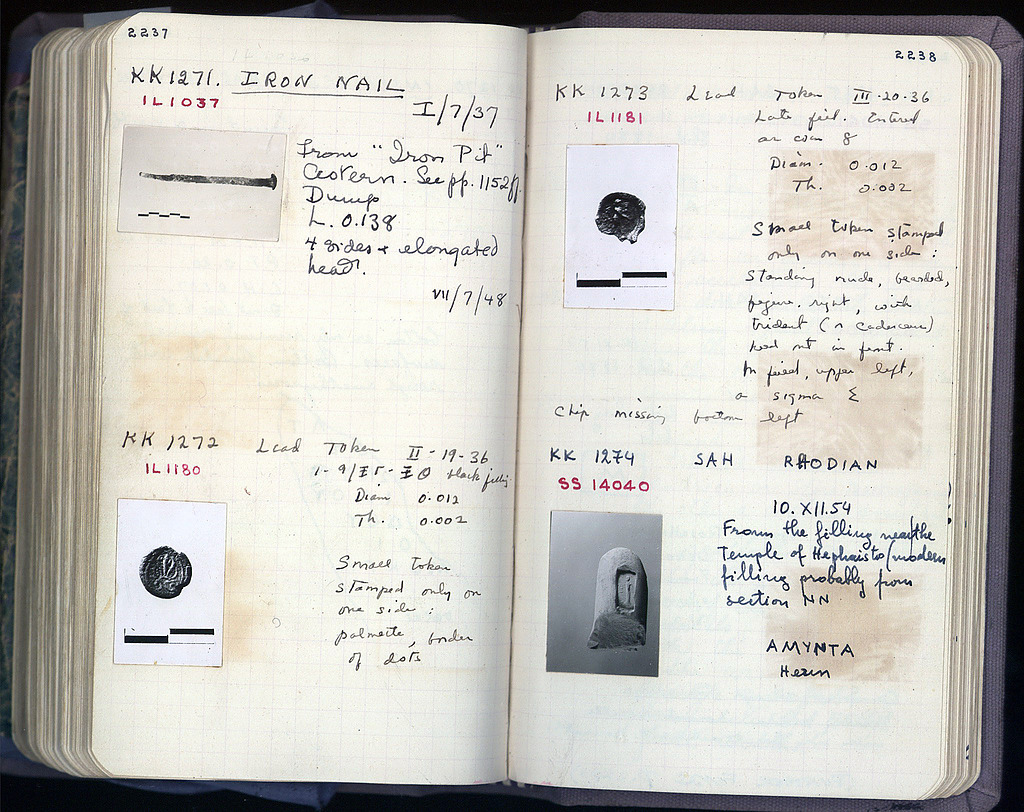 2237
KK 1271. IRON NAIL
IL 1037
I/7/37
From "Iron Pit"
Cistern. See pp. 1152ff.
Dump
L. 0.138
4 sides + elongated
head.
VII/7/48
KK 1272 Lead Token II-19-36
IL 1180
black filling
Diam 0.012
Th. 0.002
Small token
stamped only on
one side:
palmette, border
of dots
2238
KK 1273 Lead Token III-20-36
IL 1181
Late fill. Entered
as coin 8
Diam. 0.012
Th. 0.002
Small token stamped
only on one side:
Standing nude, bearded,
figure, right, with
trident (or caduceus)
held out in front.
In field, upper left,
a sigma Σ
Chip missing bottom left
KK 1274 SAH RHODIAN
SS 14040
10.XII.54
From the filling near the
Temple of Hephaisto/modern
filling probably from
section NN
AMYNTA
Herm